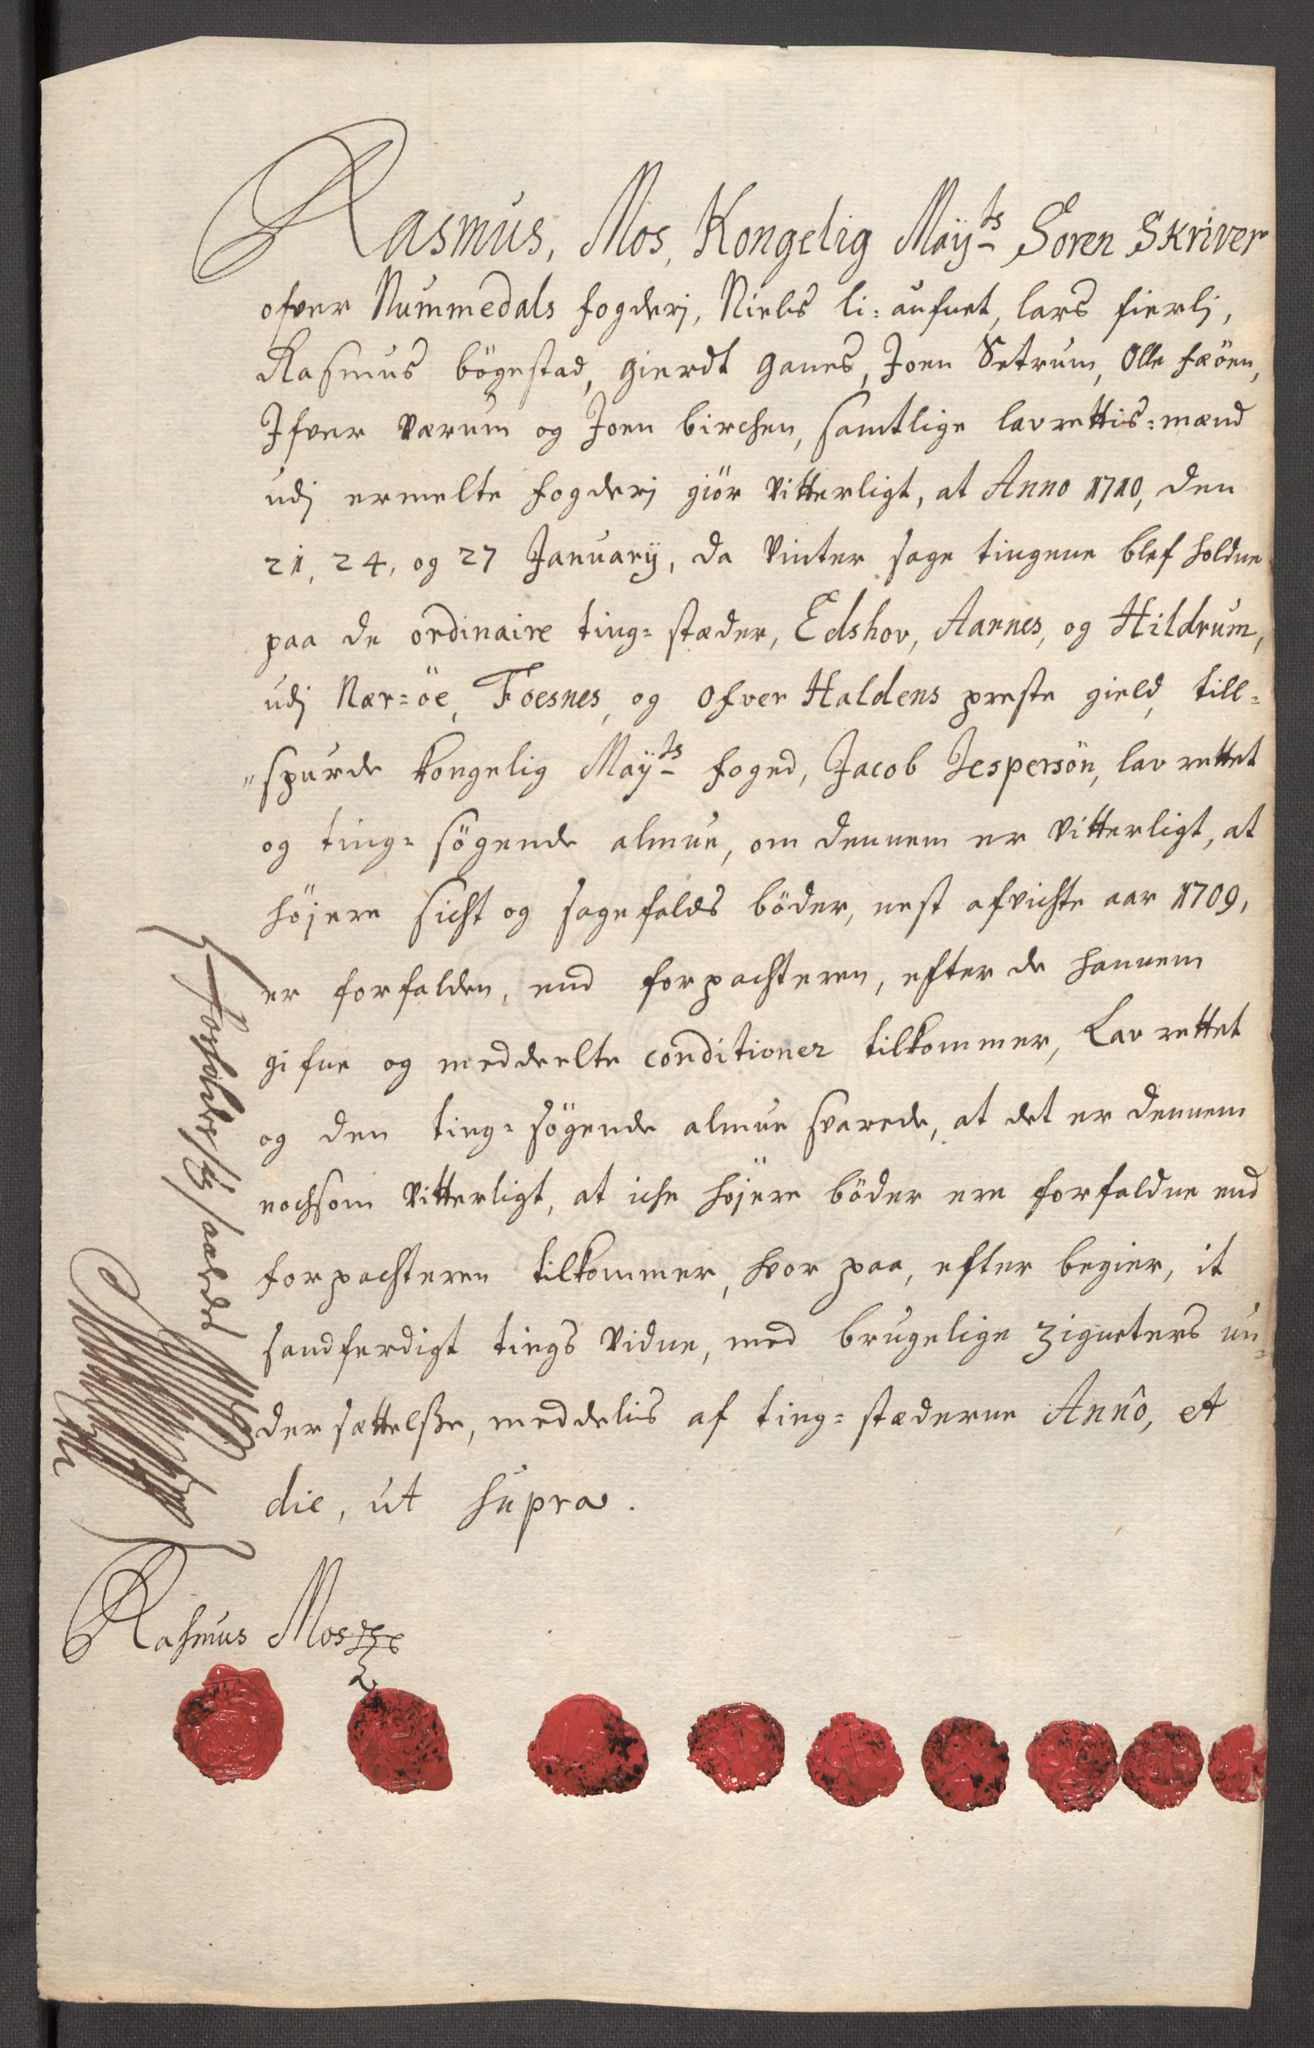 Rasmus, Mos, Kongelig Maÿ:ts Soren Skriver
ofver Nummedals fogderj, Niels li: aufnet, lars fierlj,
Rasmus bögestad, gierdt ganes, Joen Setrum, Olle fæöen,
Ifver værum og Joen birchen, samtlige lavrettis=mænd
udj ermelte fogderj giör vitterligt, at Anno 1710, den
21, 24, og 27 Januarÿ, da vinter sage tingene blef holdne
paa de ordinaire ting= stæder, Edshov, Aarnes, og Hildrum,
udj Nær=öe, Foesnes, og ofver Haldens preste gield, till=
"spurde kongelig Maÿ:ts foged, Jacob Jespersön, lav rettet
og ting= sögende almue, om dennem er vitterligt, at
höjere sicht og sagefalds böder, nest afvichte aar 1709,
er forfalden, end forpachteren, efter de hannem
gifne og meddeelte conditioner tilkommer, Lav rettet
og den ting= sögende almue svarede, at det er dennem
nochsom vitterligt, at iche höjere böder ere forfaldne end
forpachteren tilkommer, hvor paa, efter begier, it
sandferdigt tings vidne, med brugelige zigneters un=
dersættelße, meddelis af ting= stæderne Anno, et
die, ut supra.
Rasmus Mos